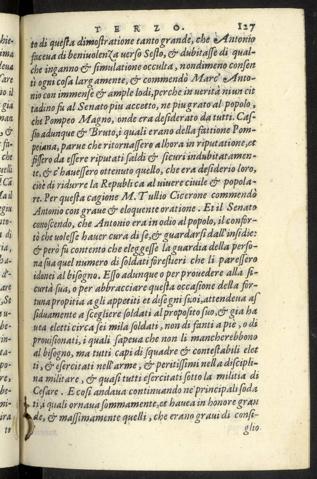 TERZO. 127
to di questa dimostratione tanto grande, che Antonio
faceua di beniuolenza verso Sesto, & dubitasse di qual-
che inganno & simulatione occulta, nondimeno consen
tì ogni cosa largamente, & commendò Marc'Anto-
nio con immense & ample lodi, perche in uerità niun cit
tadino fu al Senato piu accetto, ne piu grato al popolo,
che Pompeo Magno, onde era desiderato da tutti. Cas-
sio adunque & Bruto, i quali erano della fattione Pom-
peiana, parue che ritornassero alhora in riputatione, et
fussero da essere riputati saldi & sicuri indubitatamen-
te, & c'hauessero ottenuto quello, che era desiderio loro,
cioè di ridurre la Republica al uiuere ciuile & popola-
re. Per questa cagione M. Tullio Cicerone commendò
Antonio con graue & eloquente oratione. Et il Senato
conoscendo, che Antonio era in odio al popolo, il confor-
tò che uolesse hauer cura di se, & guardarsi dall'insidie:
& però fu contento che eleggesse la guardia della perso-
na sua quel numero di soldati forestieri che li paressero
idonei al bisogno. Esso adunque o per prouedere alla si-
curtà sua, o per abbracciare questa occasione della for-
tuna propitia a gli appetiti et disegni suoi, attendeua as
siduamente a scegliere soldati al proposito suo, & gia ha
ueua eletti circa sei mila soldati, non di fanti a piè, o di
prouisionati, i quali sapeua che non li mancherebbono
al bisogno, ma tutti capi di squadre & contestabili elet
ti, & esercitati nell'arme, & peritissimi nella discipli-
na militare, & quasi tutti esercitati sotto la militia di
Cesare. E così andaua continuando ne' principali solda
ti, i quali ornaua sommamente, et haueua in honore gran
de, & massimamente quelli, che erano graui di consi-
glio